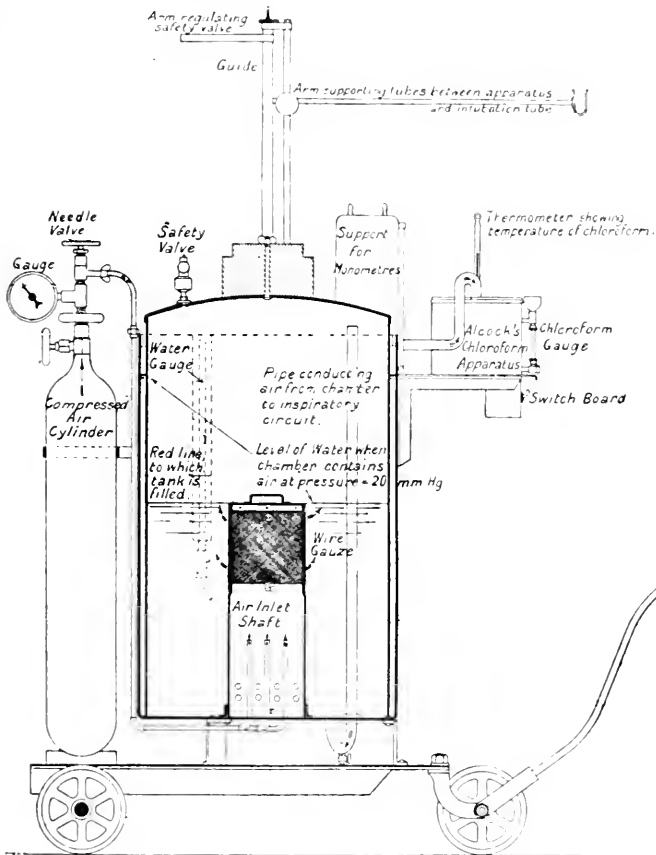 Arm regulating
safety valve
Guide
Arm supporting tubes between apparatus
and intubation tube
Needle
Valve
Safety
Valve
Support
for
Monometres
Thermometer showing
temperature of chloroform.
Gauge
Water
Gauge
Alcock's
Chloroform
Apparatus
Chloroform
Gauge
Pipe conducting
air from chamber
to inspiratory
circuit.
Switch Board
Compressed
Air
Cylinder
Red line
to which
tank is
filled.
Level of Water when
chamber contains
air at pressure = 20 mm Hg
Wire
Gauze
Air Inlet
Shaft